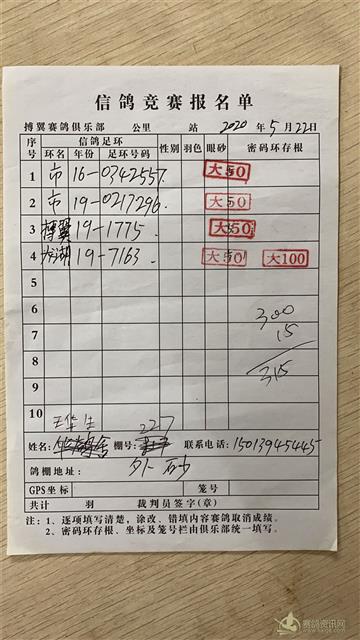 信鸽竞赛报名单
搏翼赛鸽俱乐部 公里 站 2020 年 5 月 22 日
序号 信鸽足环 性别 羽色 眼砂 密码环存根
环名 年份 足环号码
1 市 16-0342557 大50
2 市 19-0217296 大50
3 搏翼 19-1775 大50
4 19-7163 大50 大100
5
6 300
7 15
8 315
9
10
227
姓名: 棚号: 联系电话: 15013945445
鸽棚地址: 外砂
GPS坐标 笼号
共计 羽 裁判员签字(章)
注:1、逐项填写清楚,涂改、错填内容赛鸽取消成绩。
2、密码环存根、坐标及笼号栏由俱乐部统一填写。
赛鸽资讯网